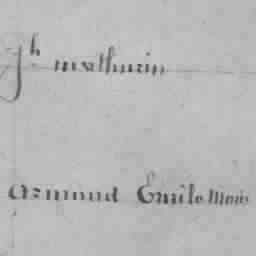 Jh mathurin
armand Emile Marie